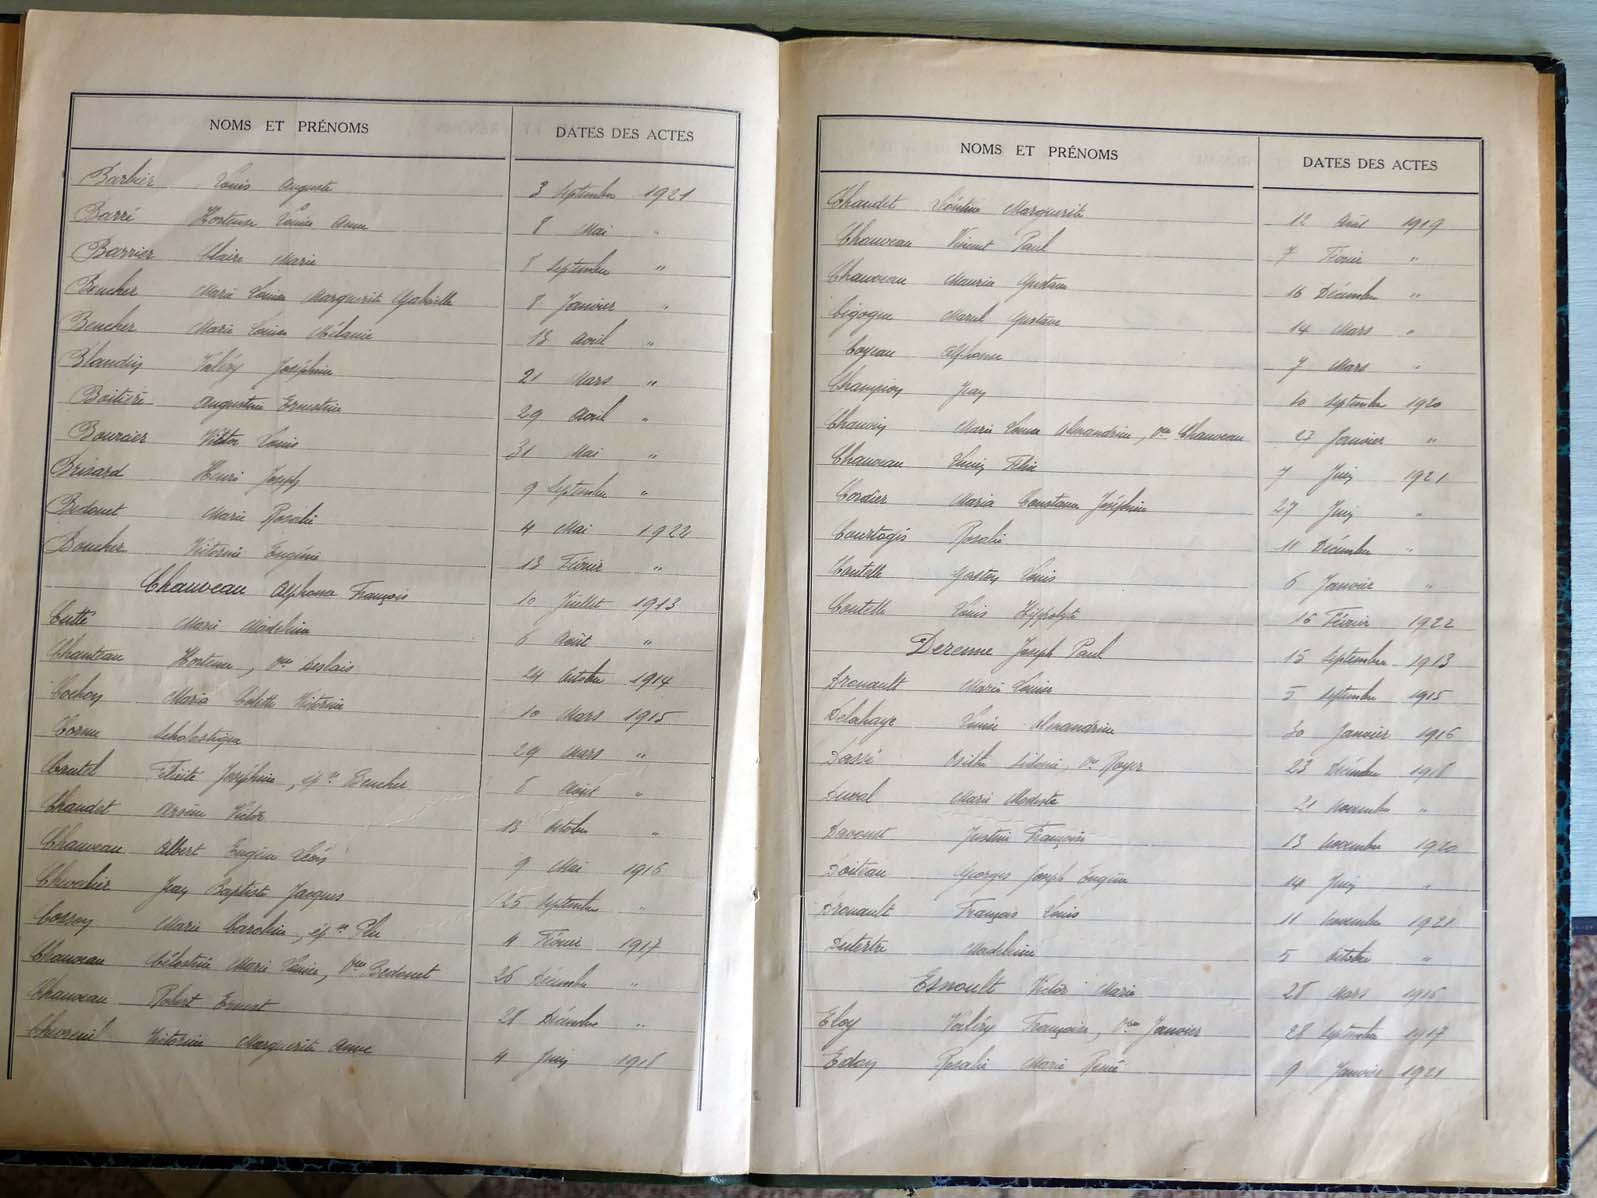 NOMS ET PRÉNOMS DATES DES ACTES
Barbier Louis Auguste 3 Septembre 1921
Barré Hortense Louise Anne 8 Mai "
Barrier Claire Marie 8 Septembre "
Boucher Marie Louise Marguerite Gabrielle 8 Janvier "
Boucher Marie Louise Mélanie 13 Avril "
Blandin Valéry Joséphine 21 Mars "
Boitière Augustine Ernestine 29 Avril "
Bourcier Victor Louis 31 Mai "
Bricard Henri Joseph 9 Septembre "
Bedouet Marie Rosalie 4 Mai 1922
Boucher Victorine Eugénie 13 Février "
Chauveau Alphonse François 10 Juillet 1913
Marie Madeleine 6 Août "
Hortense, Vve Deslais 24 Octobre 1914
Cochon Maria Colette Victorine 10 Mars 1915
Cosme Scholastique 29 Mars "
Joséphine, épse Boucher 8 Août "
Chaudet Victor 13 Octobre "
Chauveau Albert Eugène Léon 9 Mai 1916
Chevalier Jean Baptiste Jacques 25 Septembre "
Marie Caroline, épse Plu 4 Février 1917
Chauveau Célestine Marie Louise, Vve Bedouet 26 Décembre "
Chauveau Robert Ernest 28 Décembre "
Chevreuil Victorine Marguerite Anne 4 Juin 1918
NOMS ET PRÉNOMS DATES DES ACTES
Chaudet Léontine Marguerite 12 Août 1919
Chauveau Vincent Paul 7 Février "
Chauveau Maurice Gustave 16 Décembre "
Cigogne Marcel Gustave 14 Mars "
Coyeau Alphonse 7 Mars "
Champion Jean 10 Septembre 1920
Chauvin Marie Louise Alexandrine, Vve Chauveau 27 Janvier "
Chauveau Louis Félix 7 Juin 1921
Cordier Maria Constance Joséphine 27 Juin "
Courtagis Rosalie 11 Décembre "
Coutelle Gaston Louis 6 Janvier "
Coutelle Louis Hippolyte 16 Février 1922
Derenne Joseph Paul 15 Septembre 1913
Drouault Marie Louise 5 Septembre 1915
Delahaye Louise Alexandrine 20 Janvier 1916
Dassé Sidonie, Vve Royer 23 Décembre 1918
Duval Marie Modeste 21 Novembre "
Davoust Justine Françoise 13 Novembre 1920
Doiteau Georges Joseph Eugène 14 Juin "
Drouault François Louis 11 Novembre 1921
Dutertre Madeleine 5 Octobre "
Esnoult Victor Marie 28 Mars 1915
Eloy Valéry Françoise, Vve Janvier 28 Septembre 1917
Edon Rosalie Marie Renée 9 Janvier 1921